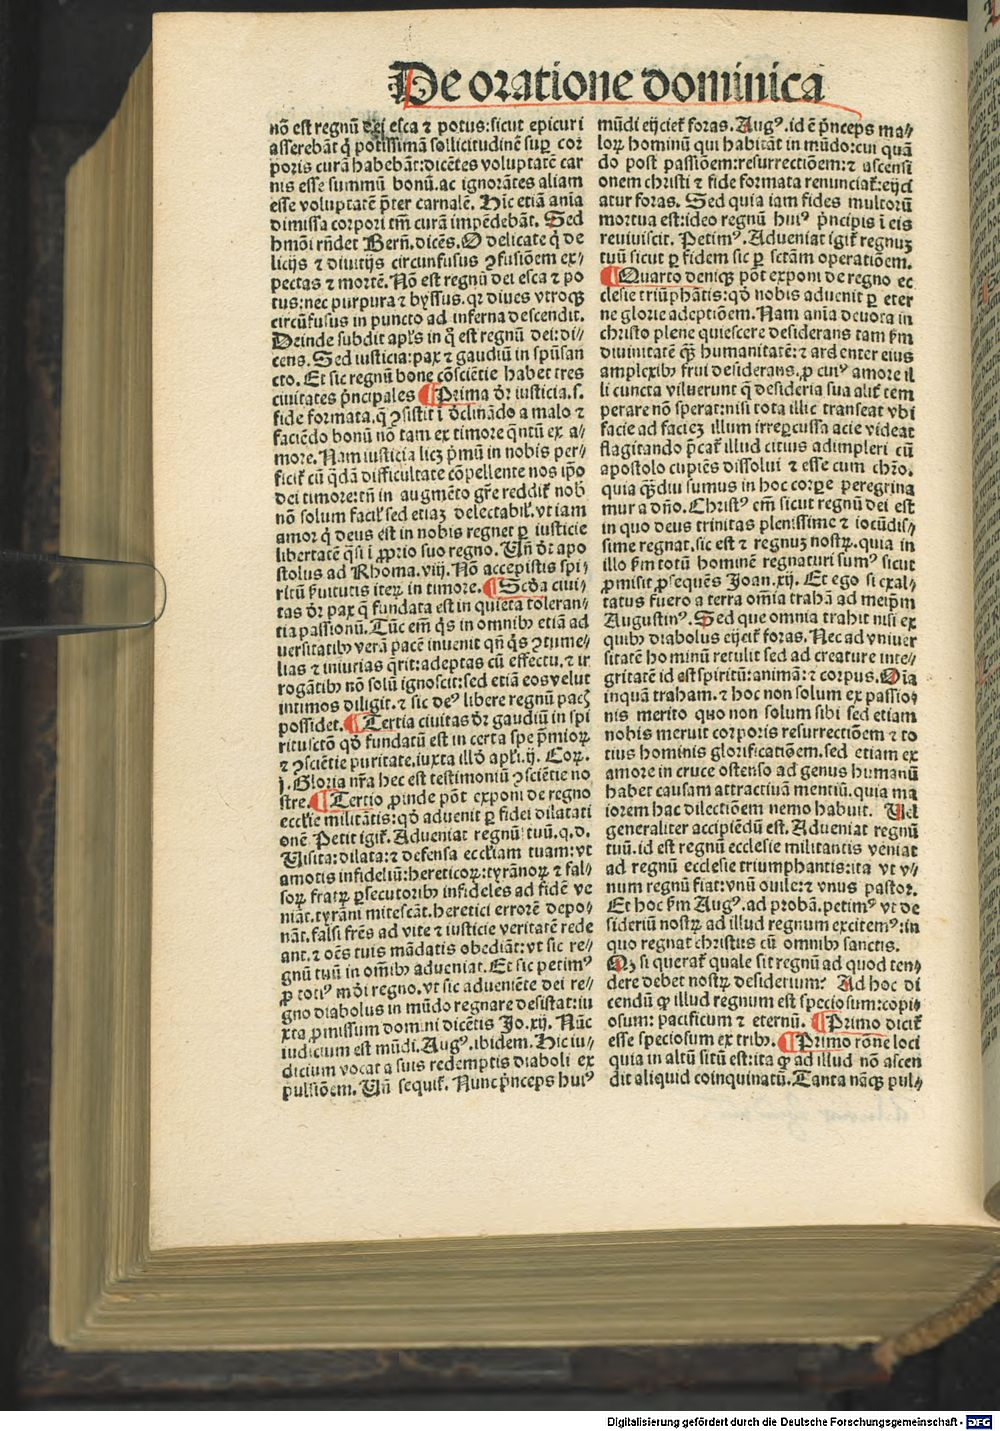 De oratione dominica
nō est regnū dei esca ⁊ potus:sicut epicuri
asserebāt q̄ potissimā sollicitudinē suꝑ cor
poris curā habebāt:dicētes voluptatē car
nis esse summū bonū.ac ignorātes aliam
esse voluptatē p̄ter carnalē. Hic etiā aīa
dimissa corpori tm̄ curā impēdebāt. Sed
hmōi rn̄det Bern̄.dicēs.O delicate q̄ de
licijs ⁊ diuitijs circunfusus ꝯfusiōem ex⸗
pectas ⁊ mortē. Nō est regnū dei esca ⁊ po
tus:nec purpura ⁊ byssus.qꝛ diues vtroqꝫ
circūfusus in puncto ad inferna descendit.
Deinde subdit apl̄s in q̄ est regnū dei:di⸗
cens. Sed iusticia:pax ⁊ gaudiū in spūsan
cto. Et sic regnū bone cōsciētie habet tres
ciuitates p̄ncipales ¶ Prima dr̄ iusticia.s.
fide formata.q̄ ꝯsistit ī declinādo a malo ⁊
faciēdo bonū nō tam ex timore q̄ntū ex a⸗
more. Nam iusticia licꝫ p̄mū in nobis per⸗
ficit᷑ cū q̄dā difficultate cōpellente nos ip̄o
dei timore:tn̄ in augmēto gr̄e reddit᷑ nob̄
nō solum facil᷑ sed etiaꝫ delectabil᷑.vt iam
amor q̄ deus est in nobis regnet ꝑ iusticie
libertatē q̄si ī ꝓprio suo regno. Vn̄ dr̄ apo
stolus ad Rhoma.viij. Nō accepistis spi⸗
ritū ẜuitutis iteꝝ in timore. ¶ Scda ciui⸗
tas dr̄ pax q̄ fundata est in quieta toleran⸗
tia passionū. Tūc em̄ q̄s in omnibꝫ etiā ad
uersitatibꝫ verā pacē inuenit qn̄ q̄s ꝯtume⸗
lias ⁊ iniurias q̄rit:adeptas cū effectu.⁊ ir
rogātibꝫ nō solū ignoscit:sed etiā eos velut
intimos diligit.⁊ sic deꝰ libere regnū pacꝭ
possidet. ¶ Tertia ciuitas dr̄ gaudiū in spi
ritusctō qd̄ fundatū est in certa spe p̄mioꝝ
⁊ ꝯsciētie puritate.iuxta illd̄ apl̄i.ij. Coꝝ.
j. Gloria nr̄a hec est testimoniū ꝯsciētie no
stre. ¶ Tertio ꝓinde pōt exponi de regno
eccl̄ie militātis:qd̄ aduenit ꝑ fidei dilatati
onē. Petit igit᷑. Adueniat regnū tuū.q.d.
Visita:dilata:⁊ defensa eccl̄iam tuam:vt
amotis infideliū:hereticoꝝ:tyrānoꝝ ⁊ fal⸗
soꝝ fratꝝ ꝑsecutoribꝫ infideles ad fidē ve
niāt.tyrāni mitescāt.heretici errorē depo⸗
nāt.falsi frēs ad vite ⁊ iusticie veritatē rede
ant.⁊ oēs tuis mādatis obediāt:vt sic re⸗
gnū tuū in om̄ibꝫ adueniat. Et sic petimꝰ
ꝓ totiꝰ mūdi regno.vt sic adueniēte dei re⸗
gno diabolus in mūdo regnare desistat:iu
xta ꝓmissum domini dicētis Jo.xij. Nūc
iudicium est mūdi. Augꝰ.ibidem. Hic iu⸗
dicium vocat a suis redemptis diaboli ex
pulsiōem. Vn̄ sequit᷑. Nunc p̄nceps huiꝰ
mūdi eijciet᷑ foras. Augꝰ.id ē p̄nceps ma⸗
loꝝ hominū qui habitāt in mūdo:cui quā
do post passiōem:resurrectiōem:⁊ ascensi
onem christi ⁊ fide formata renunciat᷑:eijci
atur foras. Sed quia iam fides multorū
mortua est:ideo regnū huiꝰ p̄ncipis ī eis
reuiuiscit. Petimꝰ. Adueniat igit᷑ regnuꝫ
tuū sicut ꝑ fidem sic ꝑ sctām operatiōem.
¶ Quarto deniqꝫ pōt exponi de regno ec
clesie triūphātis:qd̄ nobis aduenit ꝑ eter
ne glorie adeptiōem. Nam aīa deuota in
christo plene quiescere desiderans tam ẜm
diuinitatē qꝫ humanitatē:⁊ ardenter eius
amplexibꝫ frui desiderans.ꝓ cuiꝰ amore il
li cuncta viluerunt q̄ desideria sua alit᷑ tem
perare nō sperat:nisi tota illic transeat vbi
facie ad facieꝫ illum irreꝑcussa acie videat
flagitando p̄cat᷑ illud citius adimpleri cū
apostolo cupiēs dissolui ⁊ esse cum chr̄o.
quia qꝫdiu sumus in hoc corꝑe peregrina
mur a dn̄o. Christꝰ em̄ sicut regnū dei est
in quo deus trinitas plenissime ⁊ iocūdis⸗
sime regnat.sic est ⁊ regnuꝫ nostꝝ.quia in
illo ẜm totū hominē regnaturi sumꝰ sicut
ꝓmisit ꝓsequēs Joan.xij. Et ego si exal⸗
tatus fuero a terra om̄ia trahā ad meip̄m
Augustinꝰ. Sed que omnia trahit nisi ex
quibꝫ diabolus eijcit᷑ foras. Nec ad vniuer
sitatē hominū retulit sed ad creature inte⸗
gritatē id est spiritū:animā:⁊ corpus. Oīa
inquā traham.⁊ hoc non solum ex passio⸗
nis merito quo non solum sibi sed etiam
nobis meruit corporis resurrectiōem ⁊ to
tius hominis glorificatiōem.sed etiam ex
amore in cruce ostenso ad genus humanū
habet causam attractiuā mentiū.quia ma
iorem hac dilectiōem nemo habuit. Vel
generaliter accipiēdū est. Adueniat regnū
tuū.id est regnū ecclesie militantis veniat
ad regnū ecclesie triumphantis:ita vt v⸗
num regnū fiat:vnū ouile:⁊ vnus pastor.
Et hoc ẜm Augꝰ.ad probā.petimꝰ vt de
sideriū nostꝝ ad illud regnum excitemꝰ:in
quo regnat christus cū omnibꝫ sanctis.
Qꝫ si querat᷑ quale sit regnū ad quod ten⸗
dere debet nostꝝ desiderium? Ad hoc di
cendū ꝙ illud regnum est speciosum:copi⸗
osum: pacificum ⁊ eternū. ¶ Primo dicit᷑
esse speciosum ex tribꝫ. ¶ Primo rōne loci
quia in altū sitū est:ita ꝙ ad illud nō ascen
dit aliquid coinquinatū. Tanta nāqꝫ pul⸗
Digitalisierung gefördert durch die Deutsche Forschungsgemeinschaft - DFG